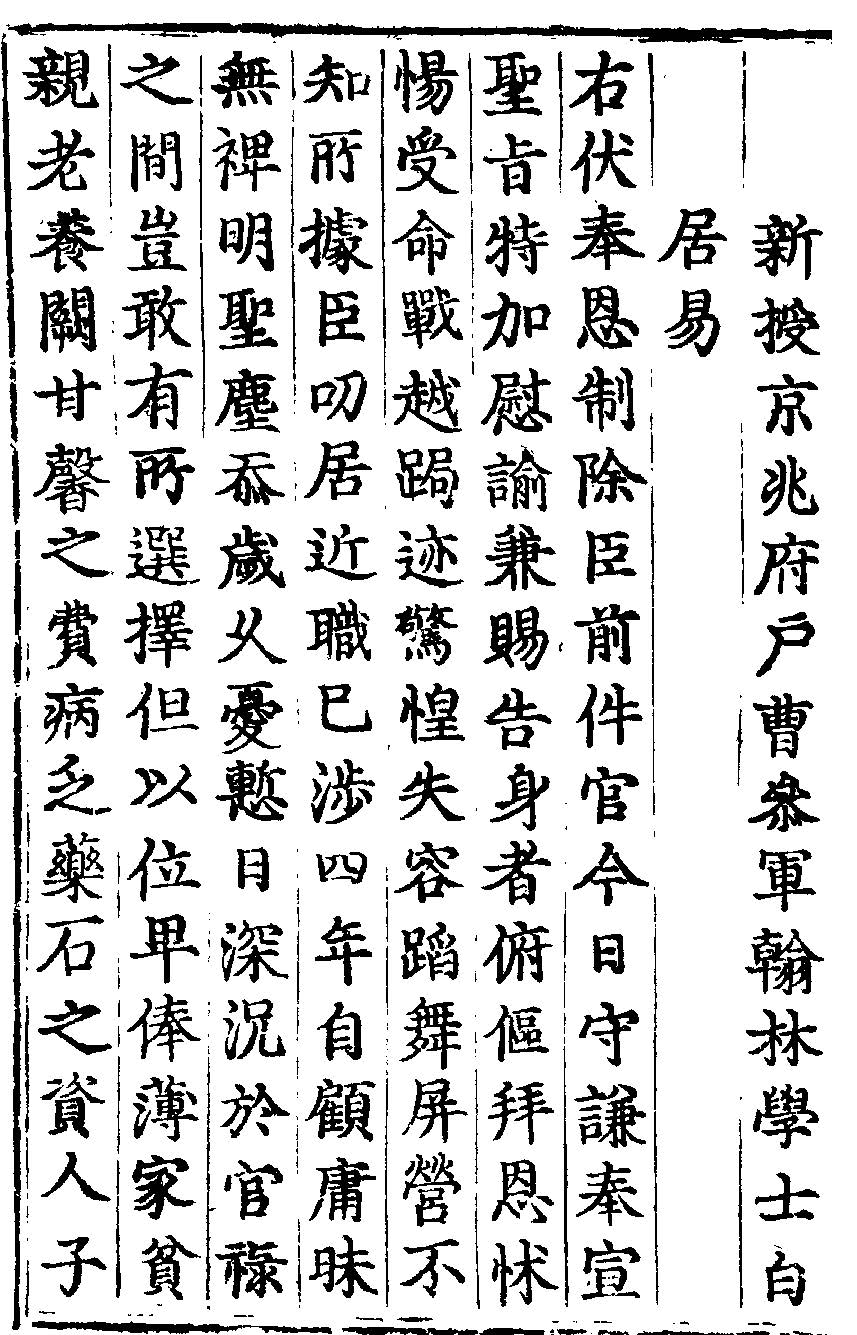 新授京兆府戶曹叅軍翰林學士白
居易
右伏奉恩制除臣前件官今日守謙奉宣
聖旨特加慰諭兼賜告身者俯傴拜恩怵
惕受命戰越跼迹驚惶失容蹈舞屏營不
知所據臣叨居近職已涉四年自顧庸昧
無裨明聖塵忝歲久憂慙日深況於官祿
之間豈敢有所選擇但以位卑俸薄家貧
親老養闕甘馨之費病乏藥石之資人子